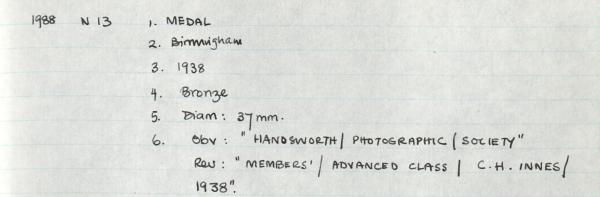 1988 N 13 1. MEDAL
2. Birmingham
3. 1938
4. Bronze
5. Diam: 37mm.
6. Obv: "HANDSWORTH/ PHOTOGRAPHIC/ SOCIETY"
Rev: "MEMBERS'/ ADVANCED CLASS / C.H. INNES/
1938".